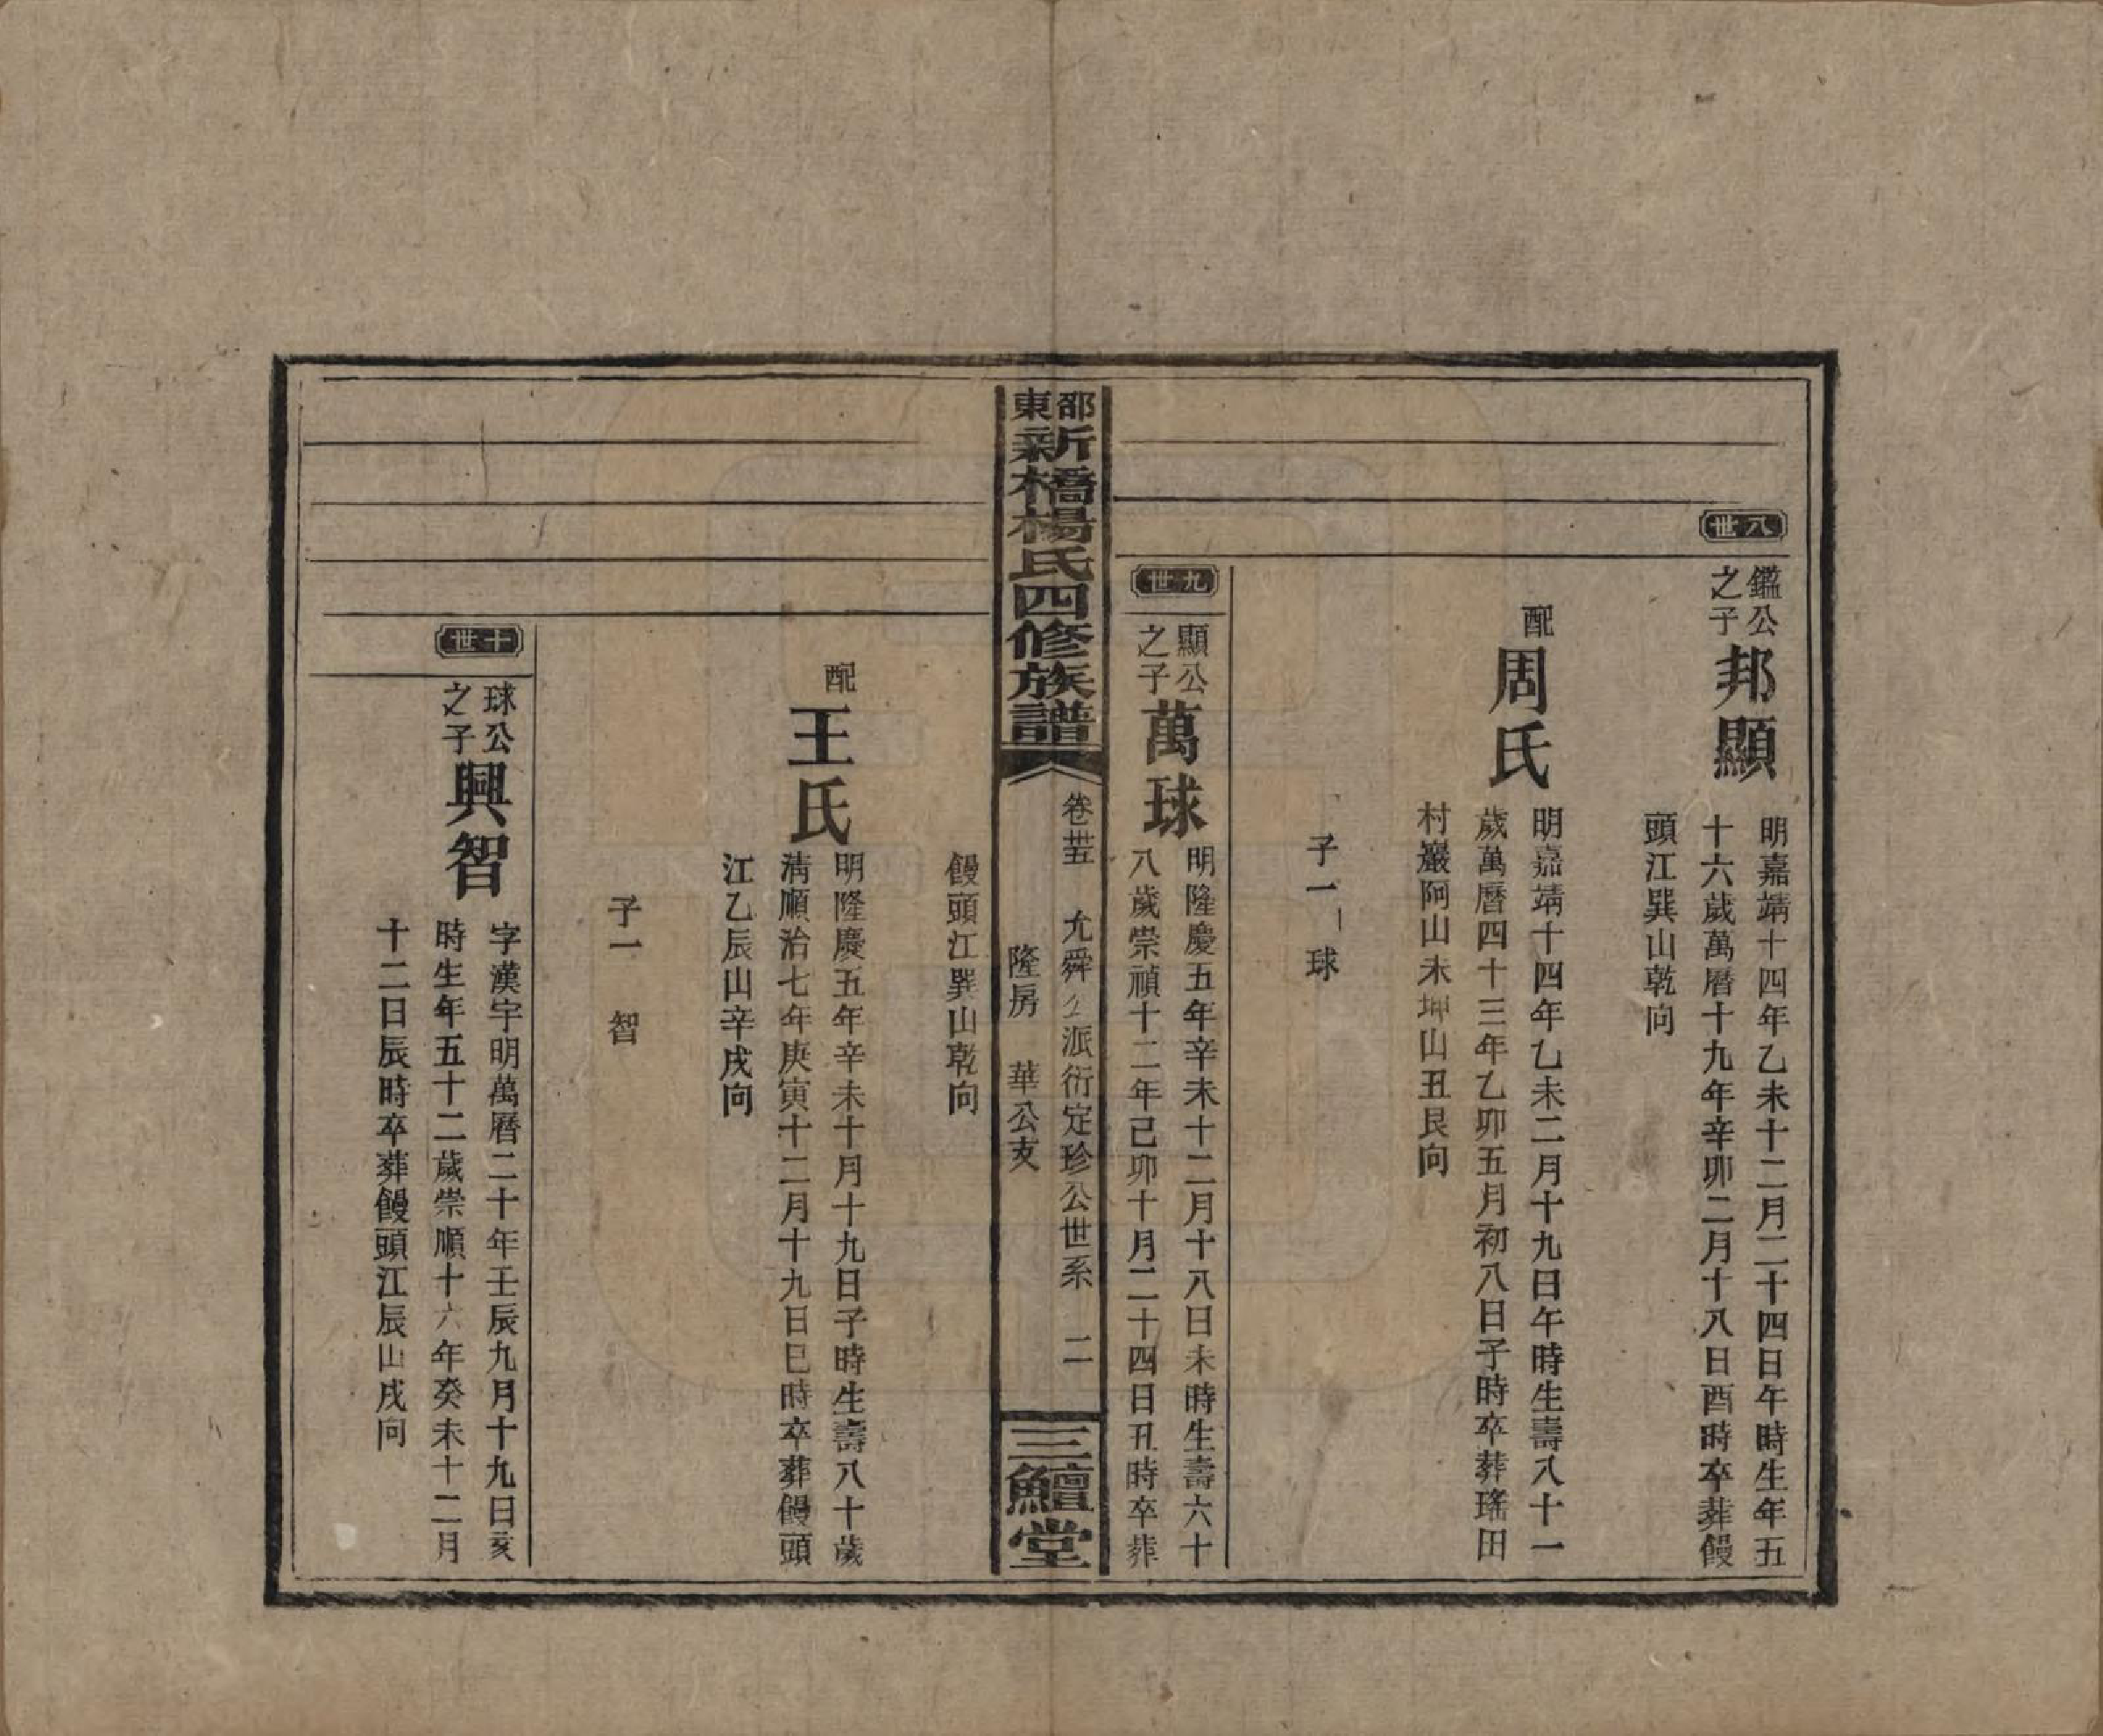 八世
鑑公之子
邦顯
明嘉靖十四年乙未十二月二十四日午時生年五
十六歲萬曆十九年辛卯二月十八日酉時卒葬饅
頭江巽山乾向
配
周氏
明嘉靖十四年乙未二月十九日午時生壽八十一
歲萬曆四十三年乙卯五月初八日子時卒葬瑤田
村巖阿山未坤山丑艮向
子一 球
九世
顯公之子
萬球
明隆慶五年辛未十二月十八日未時生壽六十
八歲崇禎十二年己卯十月二十四日丑時卒葬
邵東新橋楊氏四修族譜
卷卅五 允舜公派衍定珍公世系 二
隆房 華公支
三鱣堂
饅頭江巽山乾向
配
王氏
明隆慶五年辛未十月十九日子時生壽八十歲
清順治七年庚寅十二月十九日巳時卒葬饅頭
江乙辰山辛戌向
子一 智
十世
球公之子
興智
字漢宇明萬曆二十年壬辰九月十九日亥
時生年五十二歲崇順十六年癸未十二月
十二日辰時卒葬饅頭江辰山戌向